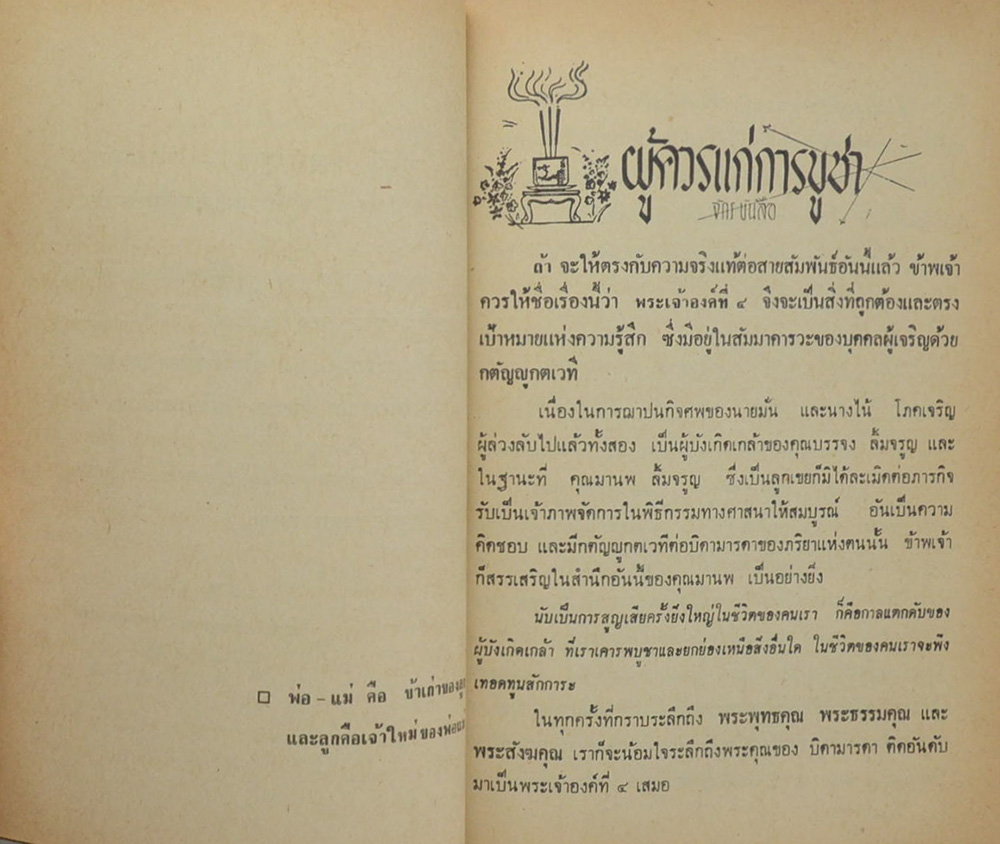 □ พ่อ - แม่ คือ ข้าเก่าของลูก
และลูกคือเจ้าใหม่ของพ่อแม่
ผู้ควรแก่การบูชา
ถ้า จะให้ตรงกับความจริงแท้ต่อสายสัมพันธ์อันนี้แล้ว ข้าพเจ้า
ควรให้ชื่อเรื่องนี้ว่า พระเจ้าองค์ที่ ๔ จึงจะเป็นสิ่งที่ถูกต้องและตรง
เป้าหมายแห่งความรู้สึก ซึ่งมีอยู่ในสัมมาคารวะของบุคคลผู้เจริญด้วย
กตัญญูกตเวที
เนื่องในการฌาปนกิจศพของนายมั่น และนางไน้ โภคเจริญ
ผู้ล่วงลับไปแล้วทั้งสอง เป็นผู้บังเกิดเกล้าของคุณบรรจง ลิ้มจรูญ และ
ในฐานะที่ คุณมานพ ลิ้มจรูญ ซึ่งเป็นลูกเขยก็มิได้ละเมิดต่อภารกิจ
รับเป็นเจ้าภาพจัดการในพิธีกรรมทางศาสนาให้สมบูรณ์ อันเป็นความ
คิดชอบ และมีกตัญญูกตเวทีต่อบิดามารดาของภริยาแห่งตนนั้น ข้าพเจ้า
ก็สรรเสริญในสำนึกอันนี้ของคุณมานพ เป็นอย่างยิ่ง
นับเป็นการสูญเสียครั้งยิ่งใหญ่ในชีวิตของคนเรา ก็คือกาลแตกดับของ
ผู้บังเกิดเกล้า ที่เราเคารพบูชาและยกย่องเหนือสิ่งอื่นใด ในชีวิตของคนเราจะพึง
เทอดทูนสักการะ
ในทุกครั้งที่กราบระลึกถึง พระพุทธคุณ พระธรรมคุณ และ
พระสังฆคุณ เราก็จะน้อมใจระลึกถึงพระคุณของ บิดามารดา ติดอันดับ
มาเป็นพระเจ้าองค์ที่ ๔ เสมอ